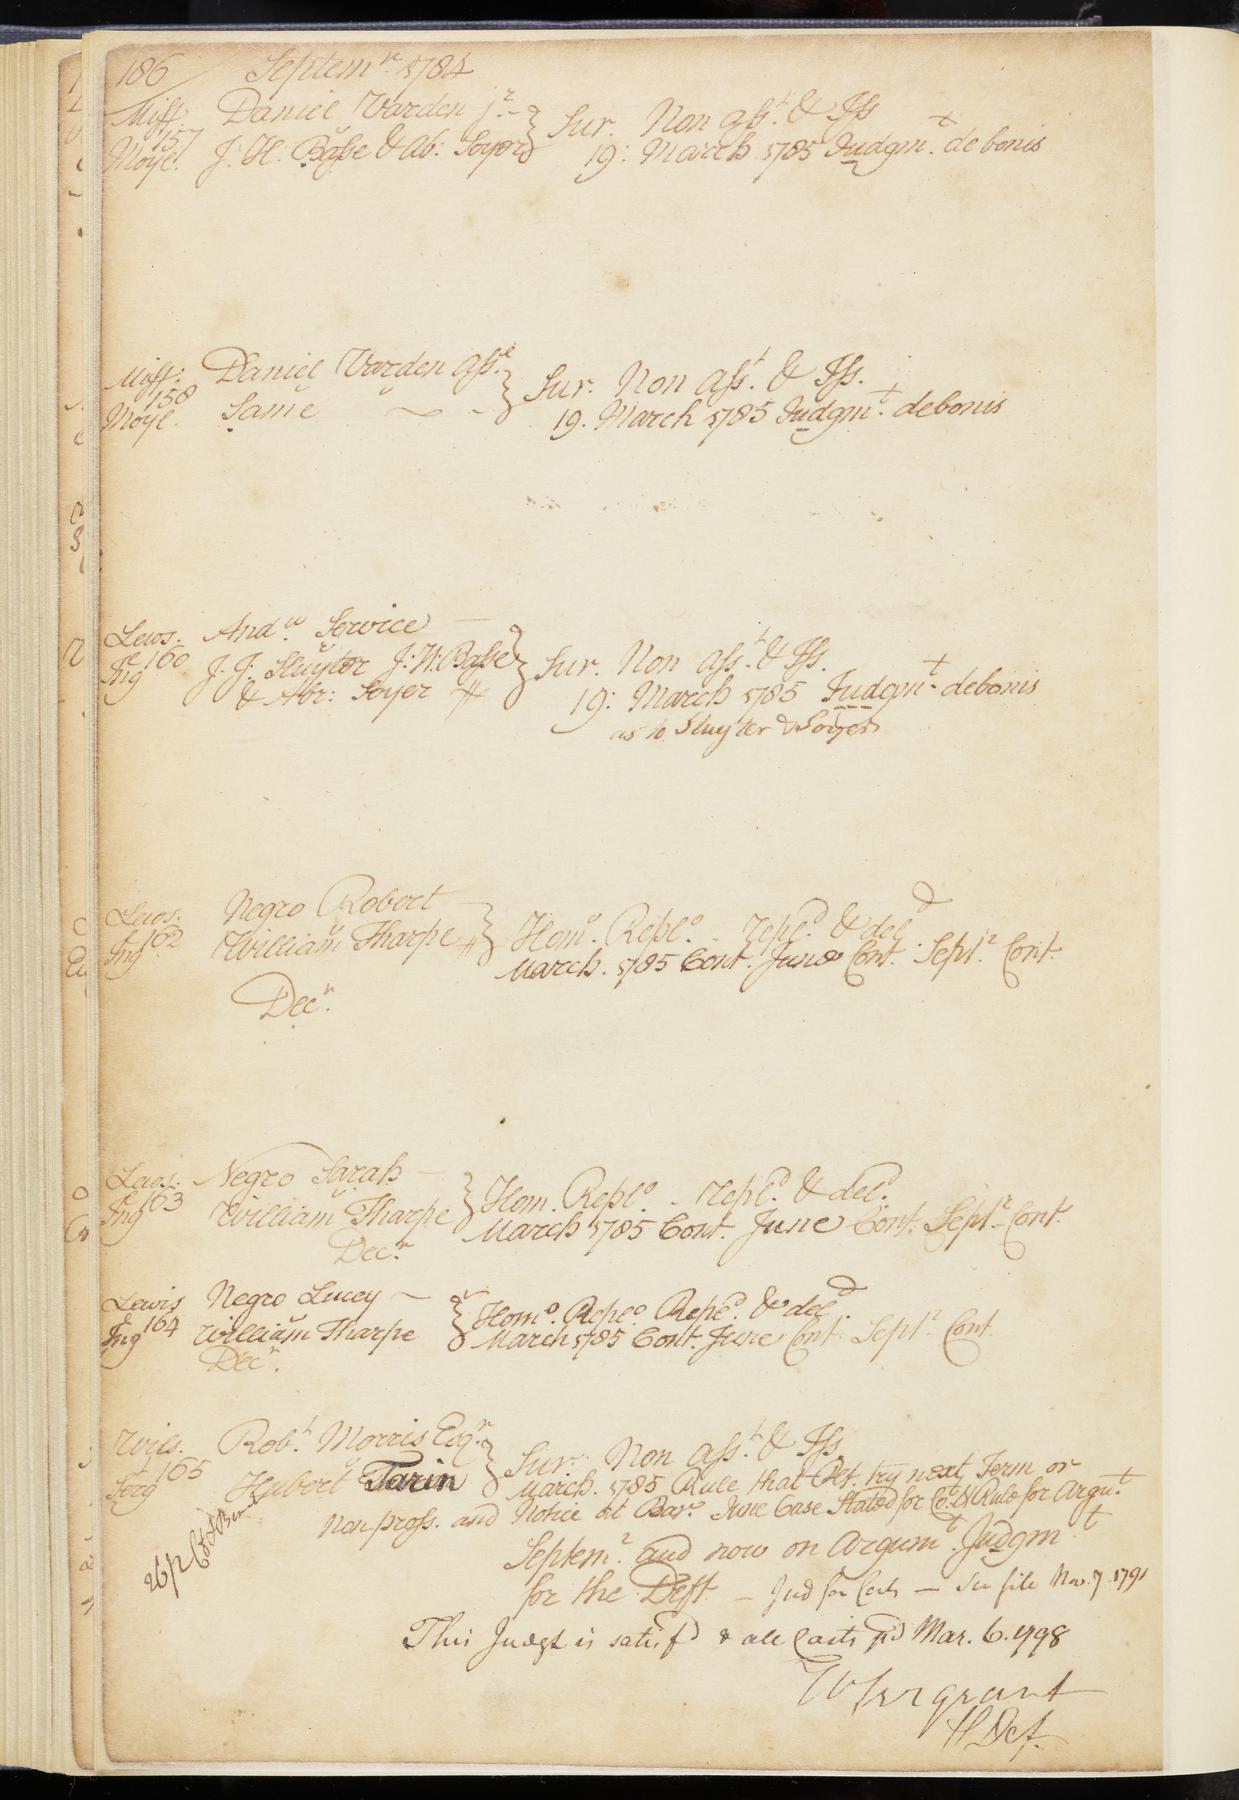 186 Septemr. 1784
Miff. Daniel Varden jr.
157 v
Moyl. J. H. Basse & Ab: Soyer
Sur. Non asst. & Iss
19: March 1785 Judgmt. de bonis
Miff: Daniel Varden assee.
158 v
Moyl. Same
Sur. Non Asst. & Iss.
19. March 1785 Judgmt. de bonis
Lews. Andw. Service
160 v
Ing J. J. Sluyter J: H: Basse
& Abr: Soyer
Sur. Non Asst. & Iss.
19: March 1785 Judgmt. de bonis
as to Sluyter & Soyer
Lews. Negro Robert
162 v
Ing William Tharpe
Homo. Replo. - repld. & deld
March. 1785 Cont. June Cont. Septr. Cont.
Decr.
Lews. Negro Sarah
163 v
Ing William Tharpe
Decr.
Hom. Replo. - repld. & deld.
March 1785 Cont. June Cont. Septr. Cont.
Lewis Negro Lucey
164 v
Ing William Tharpe
Decr.
Homo. Repleo. Repld. & deld.
March 1785 Cont. June Cont. Septr. Cont.
Wils. Robt. Morris Esqr.
165 v
Serg Hubert Tarin
Sur. Non Asst. & Iss
March. 1785 Rule that Plt. try next Term or
Non pross. and Notice at Bar. June Case Stated for Ct. & Rule for Argut.
Septemr. and now on Argumt. Judgmt
for the Deft — Jud for Costs — See file Nov. 7. 1791
This Judgt is satisfd & all Costs pd Mar. 6. 1798
W Sergeant
pDef.